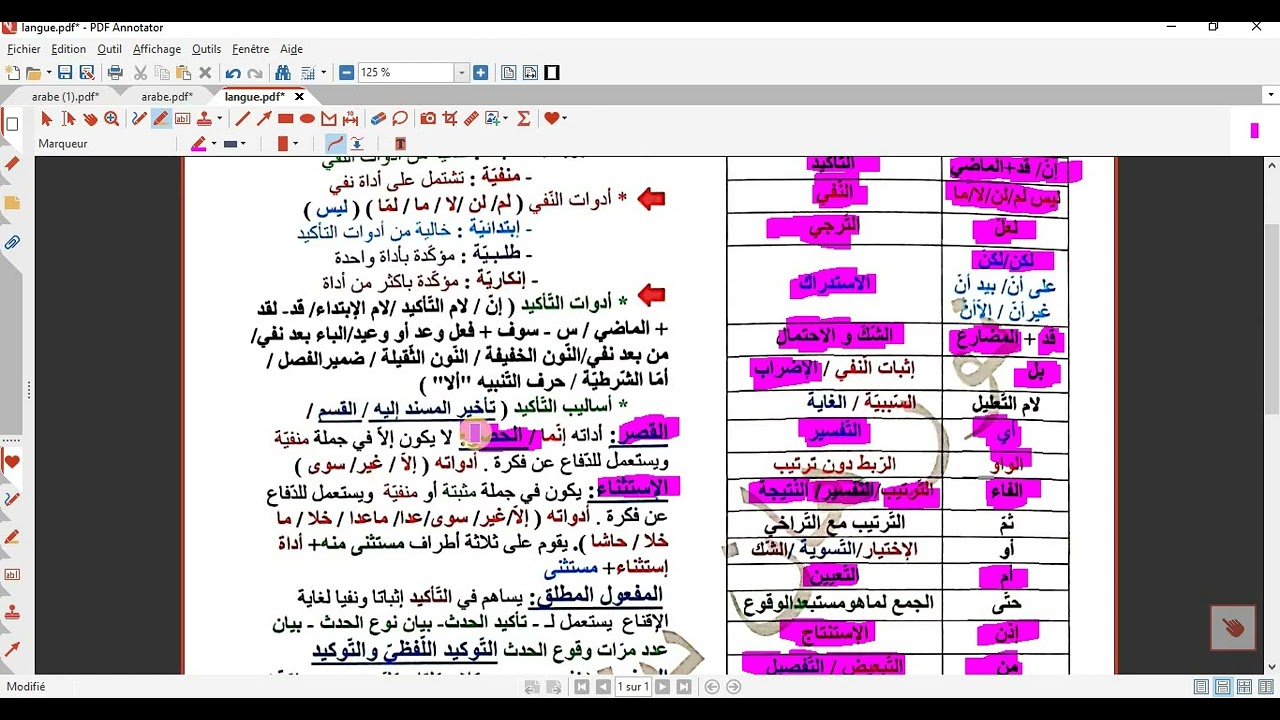 langue.pdf* - PDF Annotator
Fichier Edition Outil Affichage Outils Fenêtre Aide
125 %
arabe (1).pdf* arabe.pdf* langue.pdf*
Marqueur
التأكيد
إنّ/ قد+الماضي
النّفي
ليس لم/لن/لا/ما
التّرجي
لعلّ
الاستدراك
لكن/لكنّ
على أنّ/ بيد أنّ
غير أنّ / إلاّ أنّ
الشّكّ و الاحتمال
قد + المضارع
إثبات النّفي / الإضراب
بل
السّببيّة / الغاية
لام التّعليل
التّفسير
أي
الرّبط دون ترتيب
الواو
التّرتيب/التّفسير/ النّتيجة
الفاء
التّرتيب مع التّراخي
ثمّ
الإختيار/التّسوية /الشّك
أو
التّعيين
أم
الجمع لماهومستبعدالوقوع
حتّى
الإستنتاج
إذن
التّبعيض / التّفصيل
من
من أدوات النّفي
- منفيّة : تشتمل على أداة نفي
* أدوات النّفي ( لم/ لن /لا / ما / لمّا ) ( ليس )
- إبتدائيّة : خالية من أدوات التأكيد
- طلبيّة : مؤكّدة بأداة واحدة
- إنكاريّة : مؤكّدة باكثر من أداة
* أدوات التّأكيد ( إنّ / لام التّأكيد /لام الإبتداء/ قد- لقد
+ الماضي / س – سوف + فعل وعد أو وعيد/الباء بعد نفي/
من بعد نفي/النّون الخفيفة / النّون الثّقيلة / ضميرالفصل /
أمّا الشّرطيّة / حرف التّنبيه "ألا" )
* أساليب التّأكيد ( تأخير المسند إليه / القسم /
القصر: أداته إنّما / لا يكون إلاّ في جملة منفيّة
ويستعمل للدّفاع عن فكرة . أدواته ( إلاّ / غير/ سوى )
الإستثناء: يكون في جملة مثبتة أو منفيّة ويستعمل للدّفاع
عن فكرة . أدواته ( إلاّ/غير/ سوى/عدا/ ماعدا / خلا / ما
خلا / حاشا ). يقوم على ثلاثة أطراف مستثنى منه+ أداة
إستثناء+ مستثنى
المفعول المطلق: يساهم في التّأكيد إثباتا ونفيا لغاية
الإقناع يستعمل لـ - تأكيد الحدث- بيان نوع الحدث - بيان
عدد مرّات وقوع الحدث التّوكيد اللّفظيّ والتّوكيد
Modifié
1 sur 1